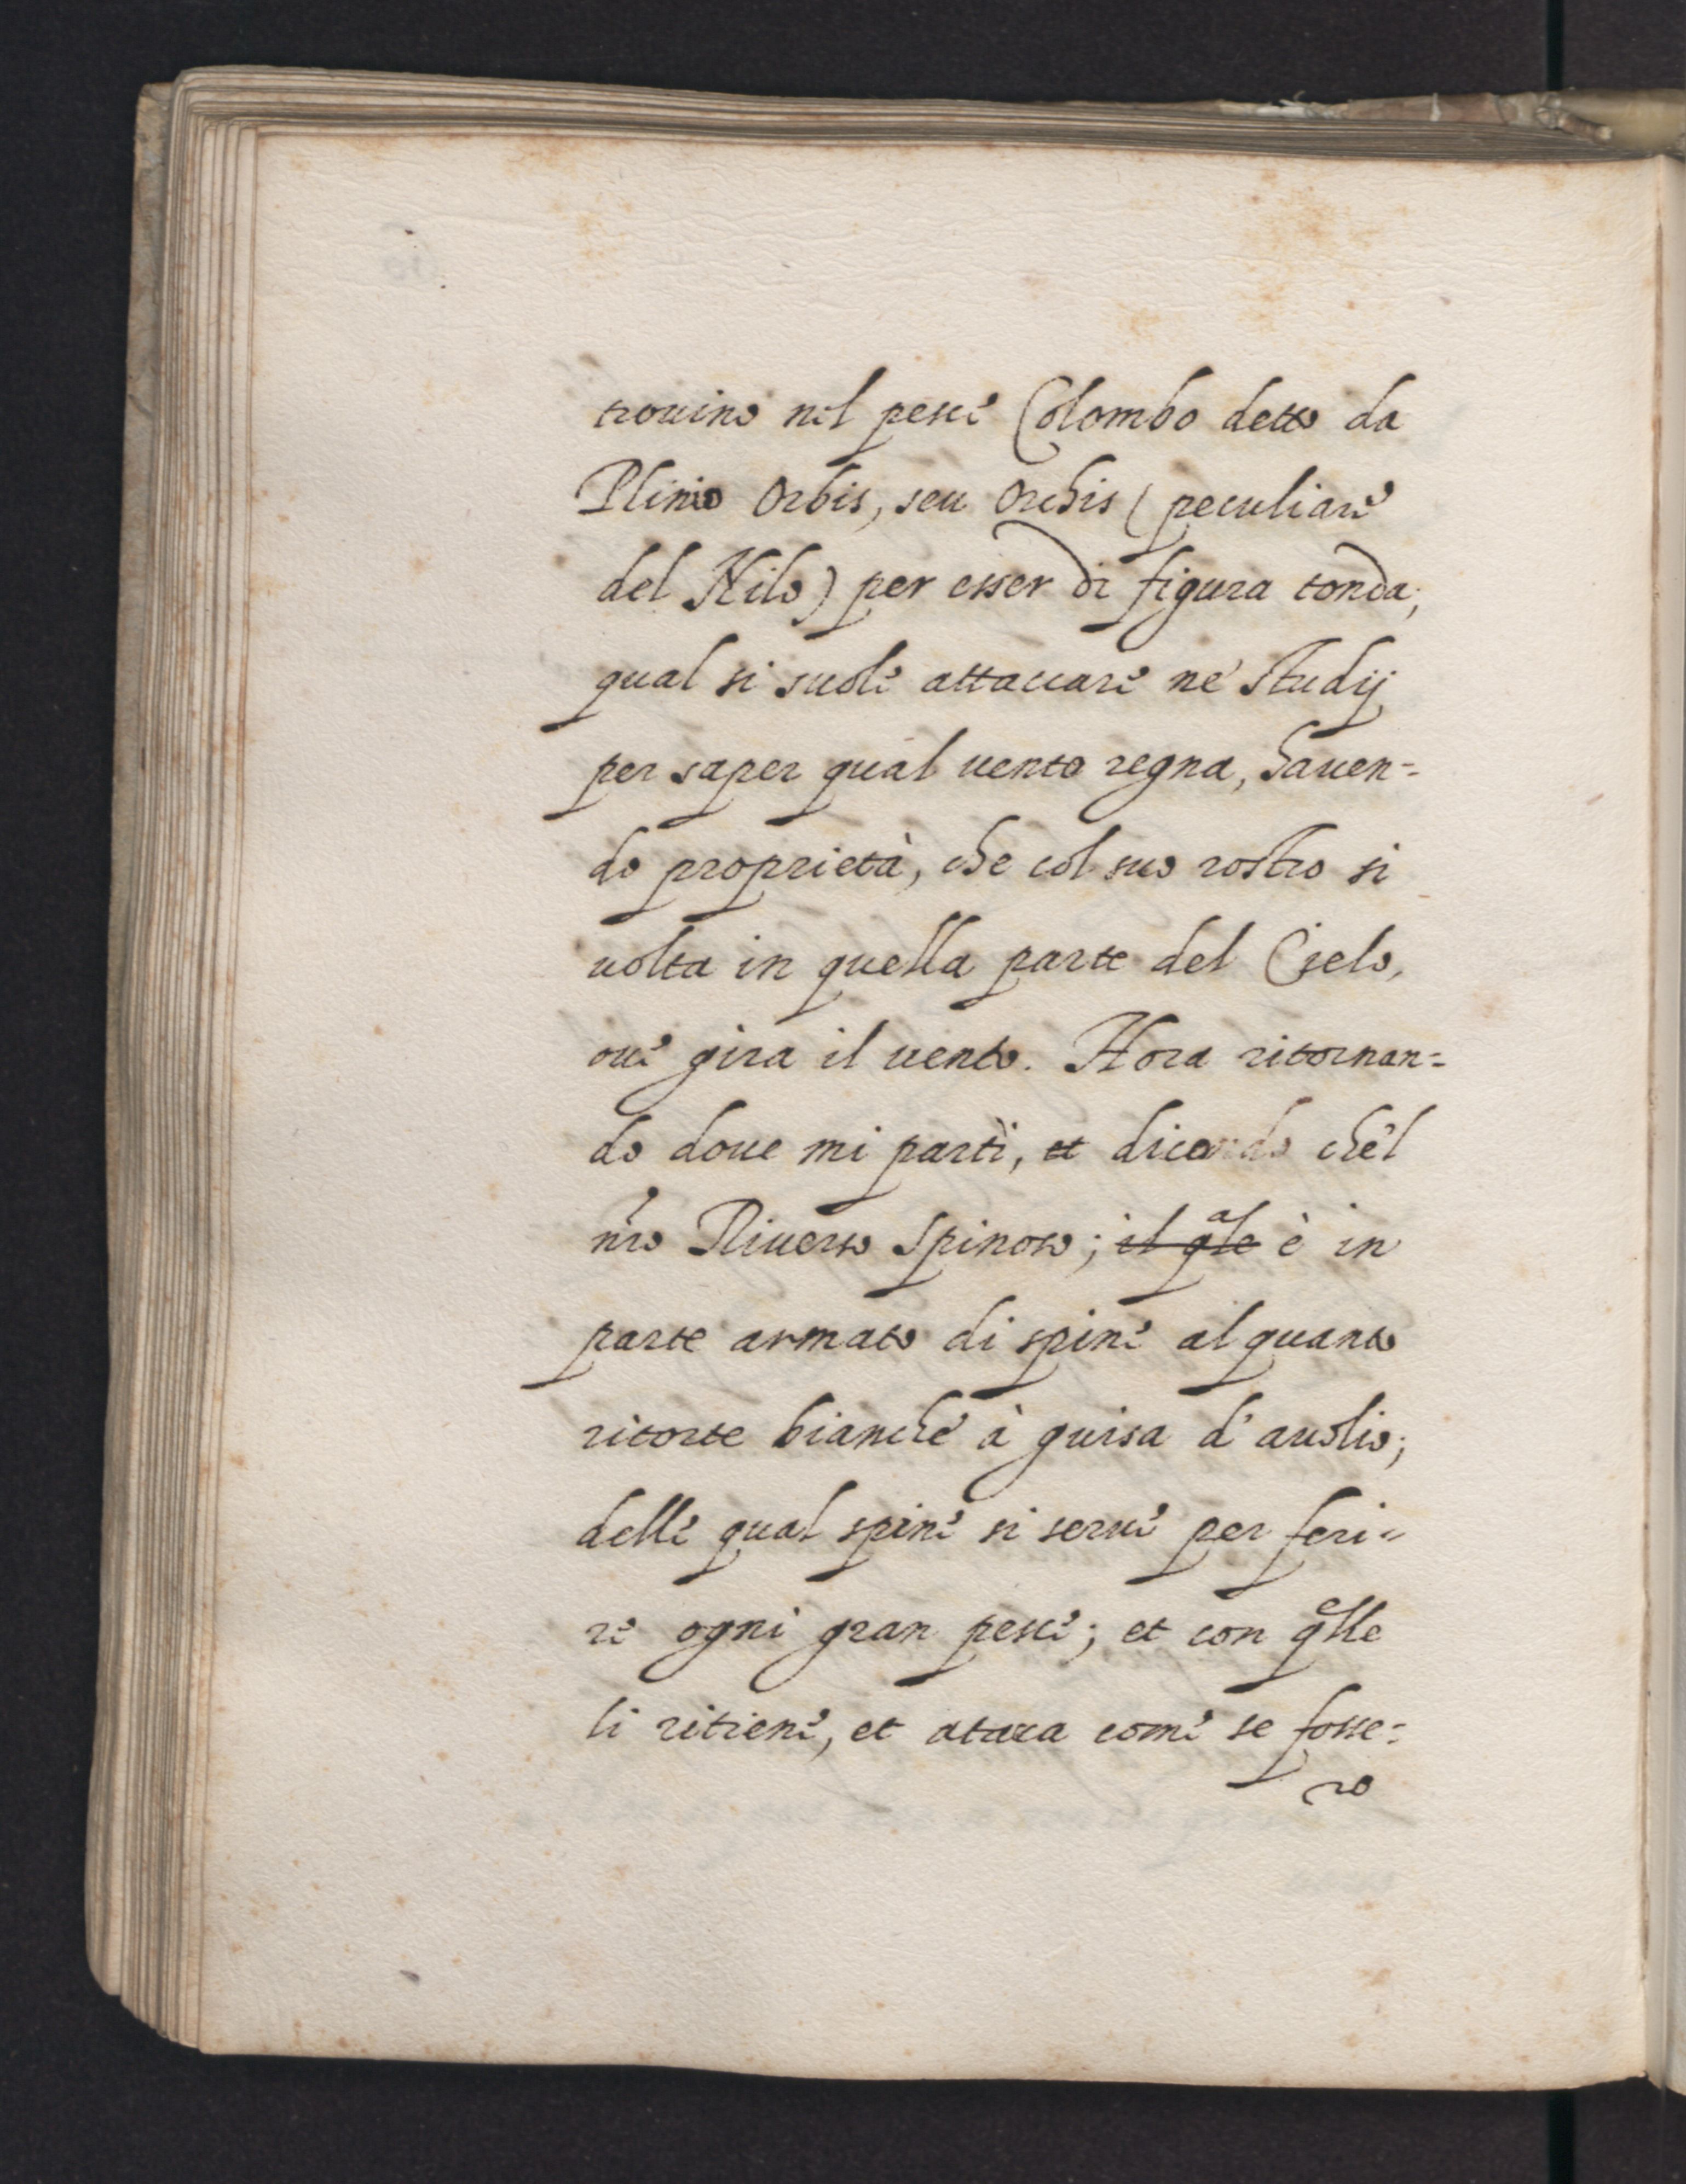 trouino nel pesce Colombo detto da
Plinio Orbis, seu Orchis (peculiare
del Nilo) per esser di figura tonda;
qual si suole attaccare ne' studij
per saper qual uento regna, hauen=
do proprietà, che col suo rostro si
uolta in quella parte del Cielo,
oue gira il uento. Hora ritornan=
do doue mi partì, et dicendo che'l
nr̃o Riuerso spinoso; il qale è in
parte armato di spine alquanto
ritorte bianche à guisa d'auolio;
delle qual spine si serue per feri=
re ogni gran pesce; et con qelle
li ritiene, et ataca come se fosse=
ro